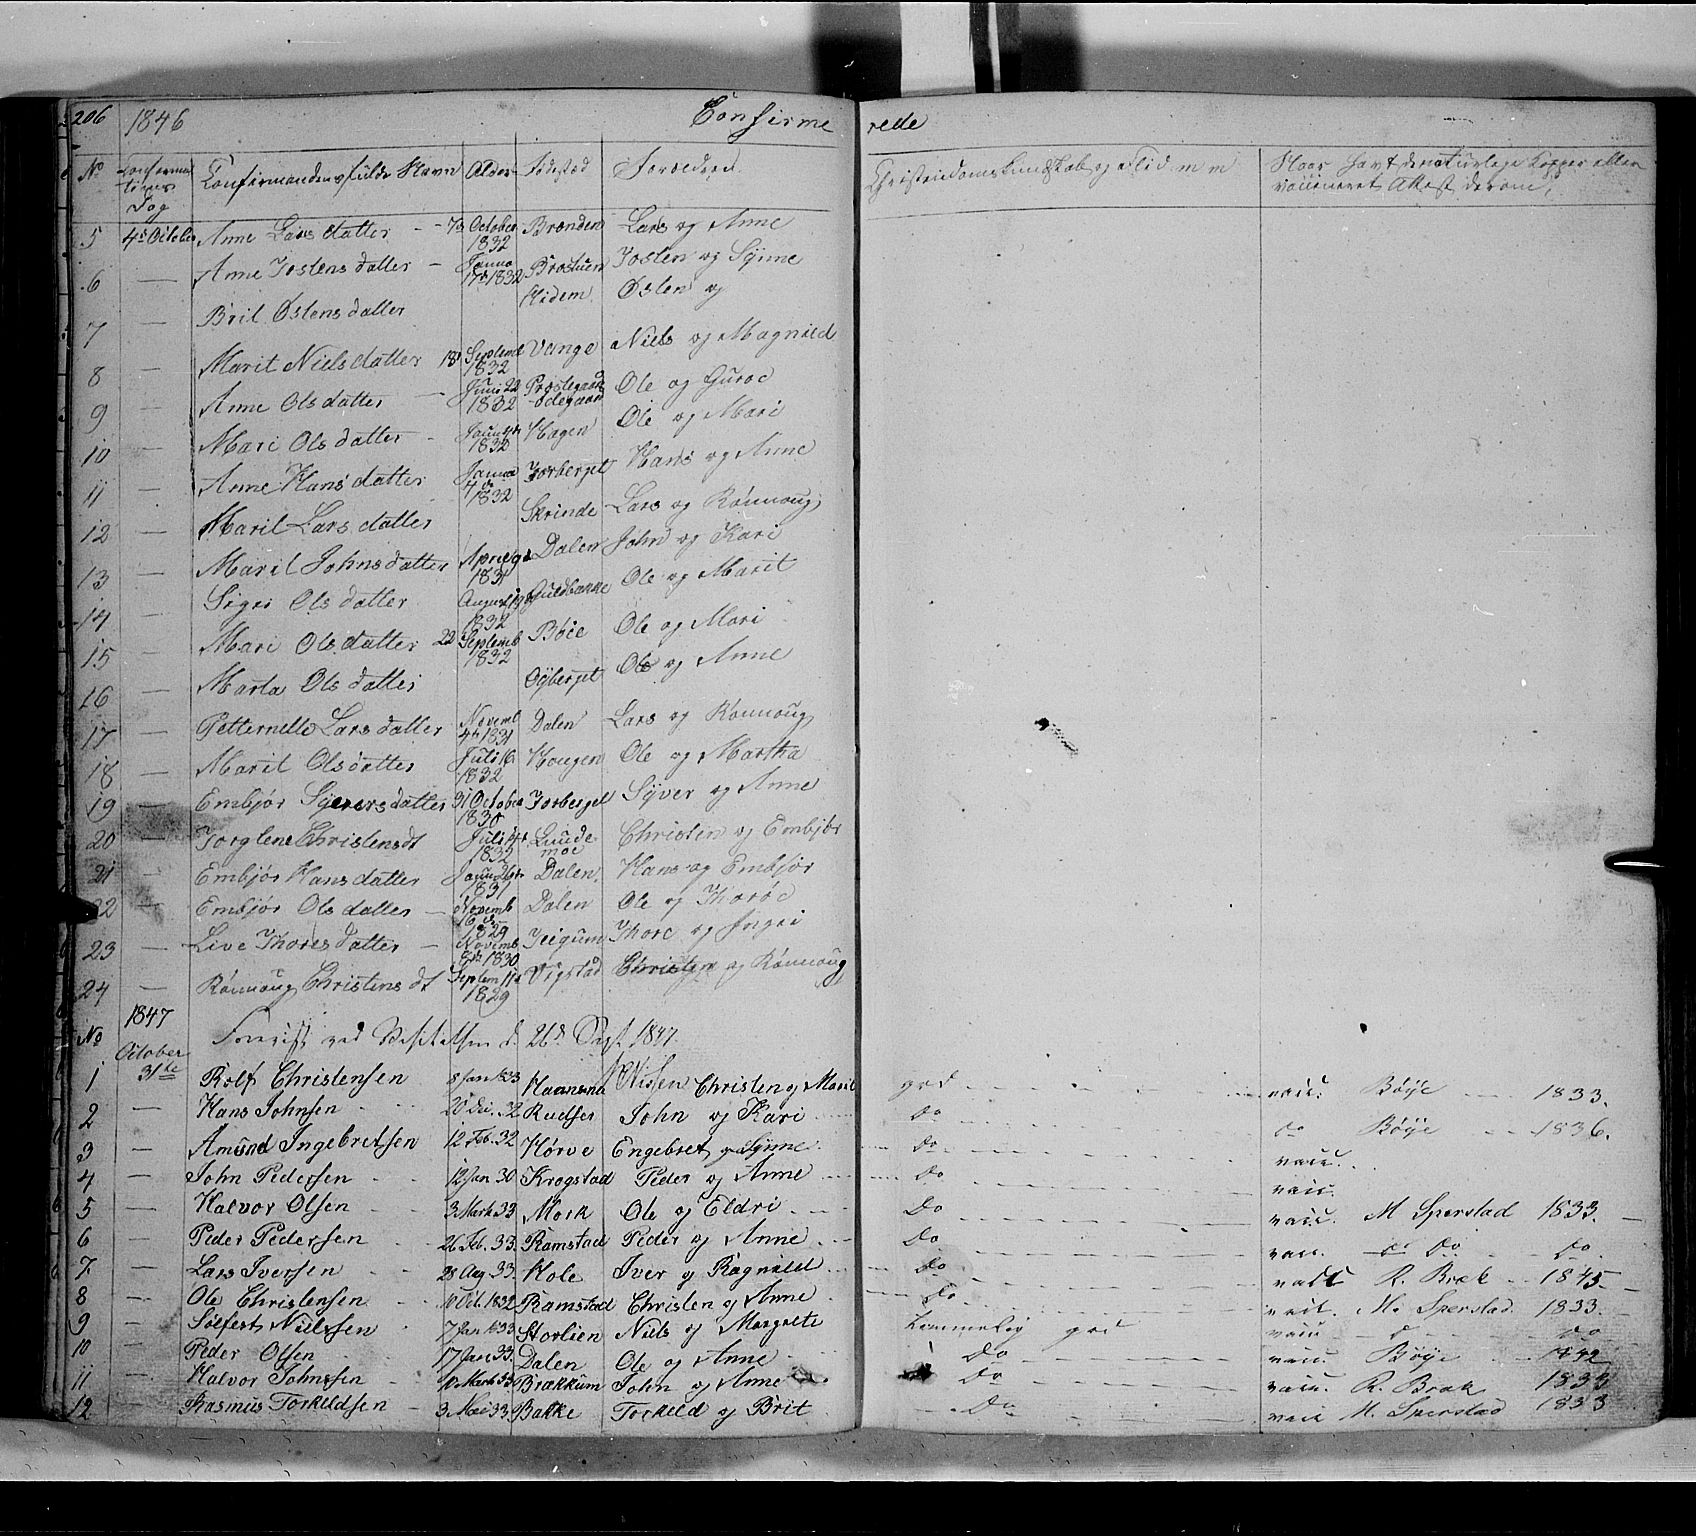 206 1846 Confirme rede
No Confirma tions Dag Confirmandens fulde Navn Alder Födested Forældre Christendoms Kundskab og Flid m m Naar havt de naturlige Kopper eller vaccineret Attest derom
5 4de October Anne Larsdatter - October 1832 Brænden Lars og Anne
6 — Anne Jostensdatter - Janua 17de 1832 Brostuen Josten og Synne
7 — Brit Østensdatter Hidem Østen og
8 — Marit Nielsdatter 18 Septemb 1832 Vange Niels og Magnild
9 — Anne Olsdatter - Juni 22 1832 Præstegaards ødegaard Ole og Guroe
10 — Mari Olsdatter - 1832 Hagen Ole og Mari
11 — Anne Hansdatter Janua 4de 1832 Forberget Hans og Anne
12 — Marit Larsdatter Skrinde Lars og Rönnoug
13 — Marit Johnsdatter April 1831 Dalen John og Kari
14 — Sigri Olsdatter August 19 1832 Guldbakke Ole og Marit
15 — Mari Olsdatter 22 Septemb 1832 Böée Ole og Mari
16 — Marta Olsdatter Ole og Anne
17 — Petternelle Larsdatter Novemb 4de 1831 Dalen Lars og Rönnoug
18 — Marit Olsdatter Juli 16 1832 Hougen Ole og Martha
19 — Embjör Syversdatter 31 October 1830 Forberget Syver og Anne
20 — Torglene Christensdt Juli 4de 1832 Luude moe Christen og Embjör
21 — Embjör Hansdatter 1831 Dalen Hans og Embjör
22 — Embjör Olsdatter - Novemb 16de 1829 Dalen Ole og Thoröe
23 — Live Thoresdatter - Novemb 8de 1830 Thore og Ingri
24 — Rönnoug Christensdt Septem 11de 1829 Vigstad Christen og Rönnoug
1847
No 26de Sept 1847
October 31te
1 Rolf Christensen 8 Jan 1833 Haansnæ Christen og Marit god vacc. Böye 1833.
2 — Hans Johnsen 20 Dec. 32 Rudser John og Kari Do do Böye 1836.
3 — Amund Ingebretsen 12 Feb. 32 Hörve Engebret og Synne Do vacc.
4 — John Pedersen 12 Jan 30 Krogstad Peder og Anne Do vacc.
5 — Halvor Olsen 3 Mark 33 Mork Ole og Eldri Do vacc. M Sperstad 1833.
6 — Peder Pedersen 26 Feb. 33. Ramstad Peder og Anne Do vacc. do Do Do.
7 — Lars Iversen 28 Aug 33. Hole Iver og Ragnild Do vacc R. Bræk 1845.
8 — Ole Christensen Oct. 1832 Ramstad Christen og Anne Do vacc. M. Sperstad 1833.
9 — Sölfest Nielsen 7 Jan 1833 Storlien Niels og Margrete temmelig god vacc d Do
10 — Peder Olsen 17 Jan 33. Dalen Ole og Anne Do vacc. Böye 1842
11 — Halvor Johnsen 10 Mark 33 Brækkum John og Anne Do vacc. R. Bræk 1833
12 — Rasmus Torkildsen 3 Mai 33. Bakke Torkeld og Brit Do vacc M. Sperstad 1833